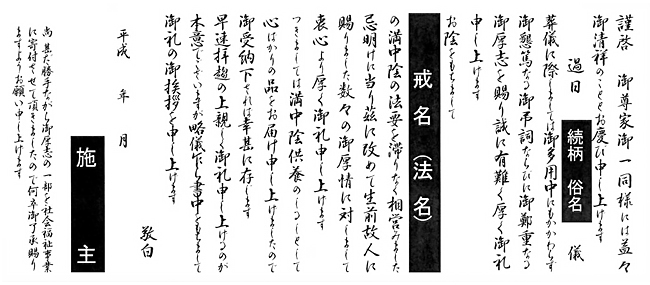 謹啓　御尊家御一同様には益々
御清祥のこととお慶び申し上げます
過日　続柄　俗名　儀
葬儀に際しましては御多用中にもかかわらず
御懇篤なる御弔詞ならびに御鄭重なる
御厚志を賜り誠に有難く厚く御礼
申し上げます
お陰をもちまして
戒名（法名）
の満中陰の法要を滞りなく相営みました
忌明けに当り茲に改めて生前故人に
賜りました数々の御厚情に対しまして
衷心より厚く御礼申し上げます
つきましては満中陰供養のしるしとして
心ばかりの品をお届け申し上げましたので
御受納下されば幸甚に存じます
早速拝趨の上親しく御礼申し上げるのが
本意でございますが略儀乍ら書中をもちまして
御礼の御挨拶を申し上げます
敬白
平成　年　月
施主
尚 甚だ勝手ながら御厚志の一部を社会福祉事業
に寄付させて頂きましたので何卒御了承賜り
ますようお願い申し上げます